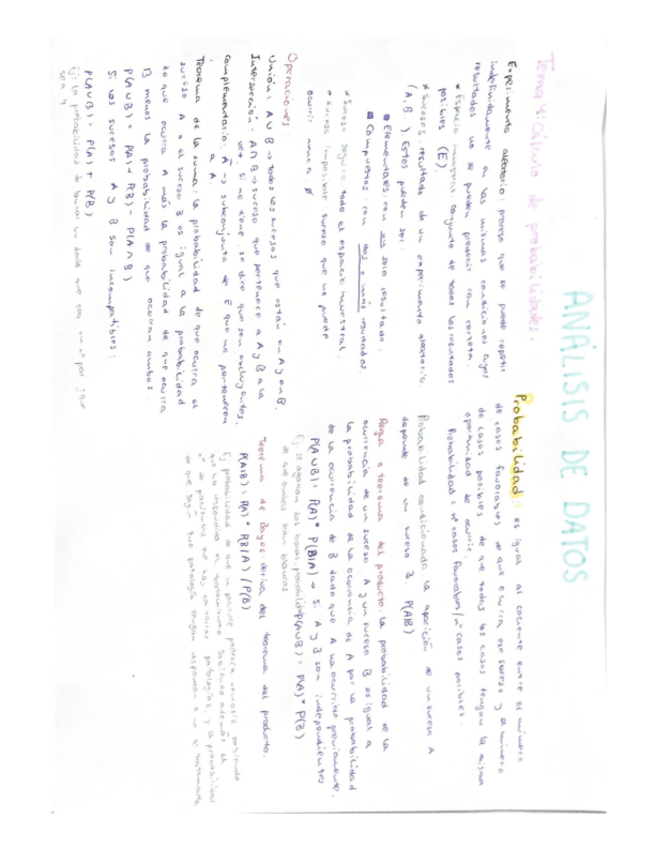 ANÁLISIS DE DATOS
Tema 4: Cálculo de probabilidades.
Experimento aleatorio: proceso que se puede repetir
indefinidamente en las mismas condiciones cuyos
resultados no se pueden predecir con certeza.
* Espacio muestral: conjunto de todos los resultados
posibles (E)
* Sucesos: resultado de un experimento aleatorio.
(A, B..). Estos pueden ser:
■ Elementales: con un solo resultado.
■ Compuestos: con dos o más resultados.
* Suceso seguro: todo el espacio muestral
* Suceso imposible: suceso que no puede
ocurrir nunca Ø
Operaciones:
Unión: A∪B → todos los sucesos que están en A y en B.
Intersección: A∩B → suceso que pertenece a A y B a la
vez, si no tiene, se dice que son excluyentes.
Complementario: Ā → subconjunto de E que no pertenecen
a A.
Teorema de la suma: la probabilidad de que ocurra el
suceso A o el suceso B es igual a la probabilidad
de que ocurra A más la probabilidad de que ocurra
B menos la probabilidad de que ocurran ambos.
P(A∪B) = P(A) + P(B) - P(A∩B)
Si los sucesos A y B son incompatibles:
P(A∪B) = P(A) + P(B)
Ej: la probabilidad de lanzar un dado que sea un nº par y que
sea 4.
Probabilidad: es igual al cociente entre el número
de casos favorables de que ocurra ese suceso y el número
de casos posibles de que todos los casos tengan la misma
oportunidad de ocurrir.
Probabilidad = nº casos favorables/nº casos posibles.
Probabilidad condicionada: la aparición de un suceso A
depende de un suceso B. P(A|B)
Regla o teorema del producto: la probabilidad de la
ocurrencia de un suceso A y un suceso B es igual a
la probabilidad de la ocurrencia de A por la probabilidad
de la ocurrencia de B dado que A ha ocurrido previamente.
P(A∪B) = P(A) * P(B|A) → Si A y B son independientes
P(A∪B) = P(A) * P(B)
Ej: se sacan dos bolas, probabilidad
de que ambas sean blancas
Teorema de Bayes: deriva del teorema del producto.
P(A|B) = P(A) * P(B|A) / P(B)
Ej: probabilidad de que un paciente padezca neurosis sabiendo
que ha respondido al tratamiento sabiendo además el
nº de pacientes que hay en varias patologías, y la probabilidad
de que según que patología tengan respondan o no al tratamiento